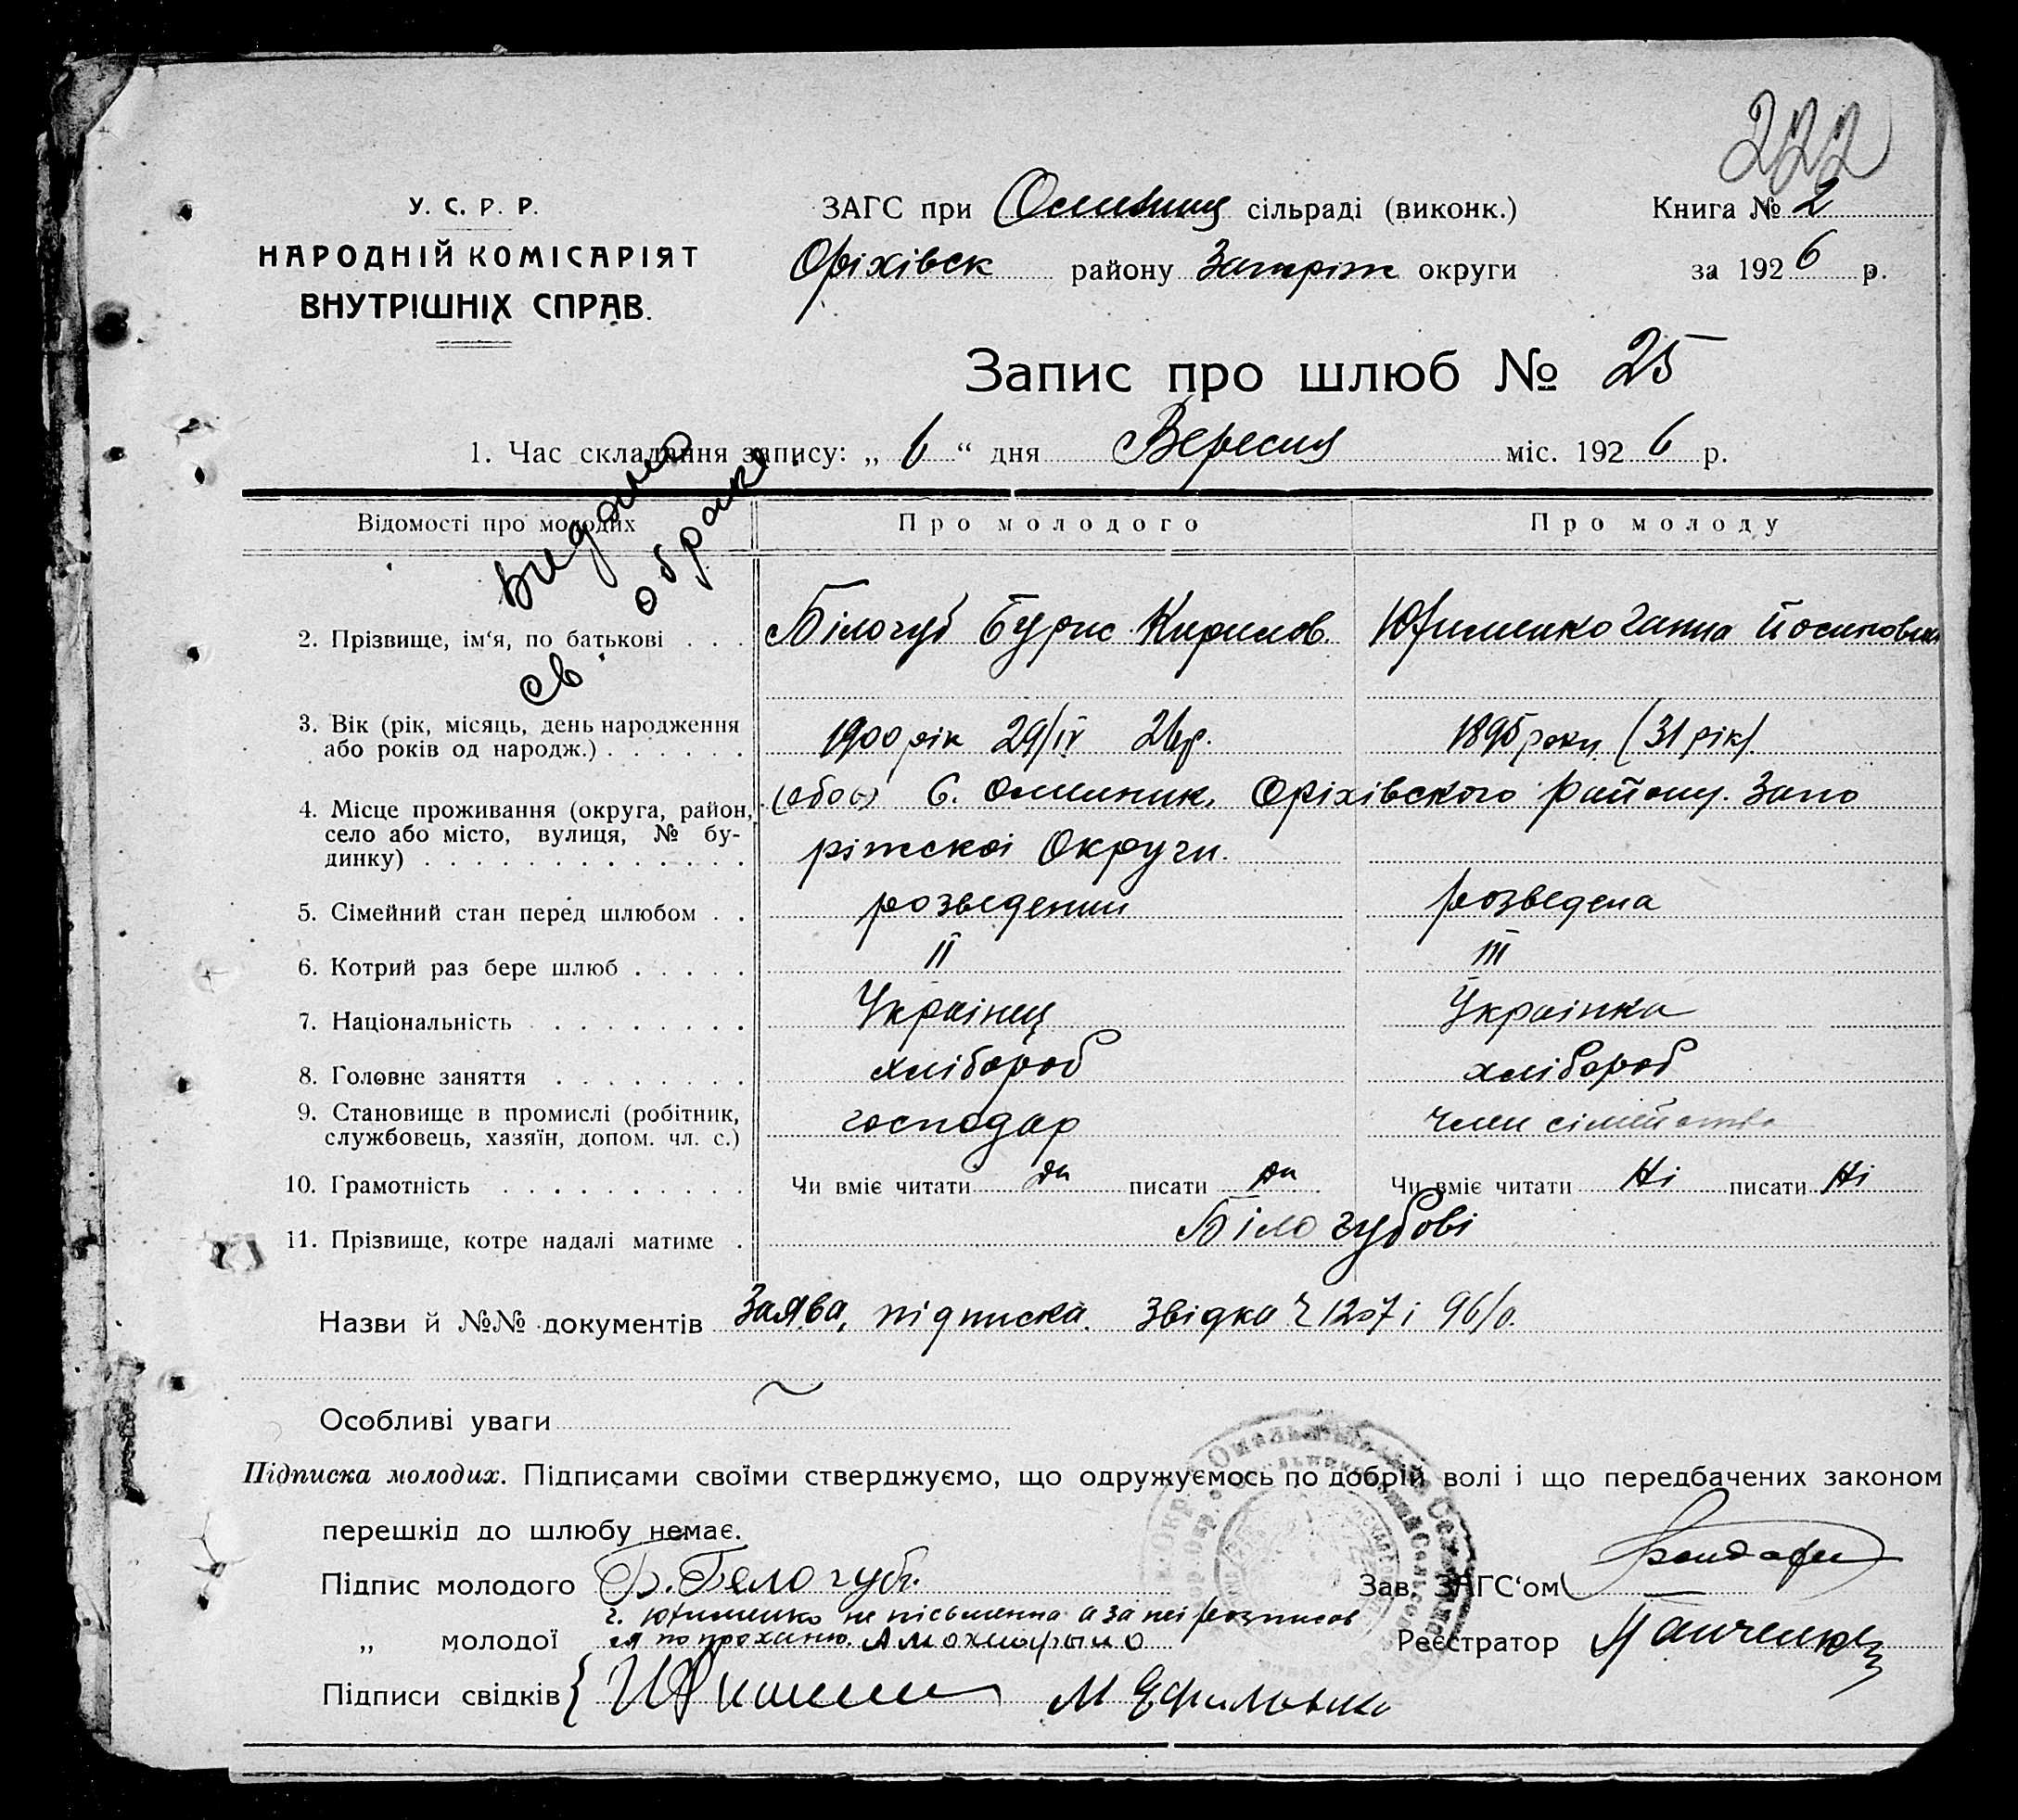 222
У. С. Р. Р.
НАРОДНІЙ КОМІСАРІЯТ
ВНУТРІШНІХ СПРАВ.
ЗАГС при сільраді (виконк.)
Оріхівськ району Запоріж округи
Книга № 2
за 1926 р.
Запис про шлюб № 25
1. Час складання запису: „ 6 “ дня Вересня міс. 1926 р.
видано
св. о браке
Відомості про молодих Про молодого Про молоду
2. Прізвище, ім‘я, по батькові . . . Білогуб Бурис Кирилов. Юхименко Ганна Йосиповна
3. Вік (рік, місяць, день народження
або років од народж.) . . . . . . 1900 рік 29/IV 26 р. 1895 року (31 рік)
4. Місце проживання (округа, район,
село або місто, вулиця, № бу-
динку) . . . . . . . . . . . . .
(обоє) с. Омельник, Оріхівского району. Запо
ріжскоі Округи.
5. Сімейний стан перед шлюбом . . розведений розведена
6. Котрий раз бере шлюб . . . . . II III
7. Національність . . . . . . . . . Украінец Украінка
8. Головне заняття . . . . . . . . хлібороб хлібороб
9. Становище в промислі (робітник,
службовець, хазяїн, допом. чл. с.) господар член сімейства
10. Грамотність . . . . . . . . . . Чи вміє читати да писати да Чи вміє читати Ні писати Ні
11. Прізвище, котре надалі матиме . Білогубові
Назви й №№ документів Заява, підписка. Звідка ч 1207 і 96/о.
Особливі уваги
Підписка молодих. Підписами своїми стверджуємо, що одружуємось по добрій волі і що передбачених законом
перешкід до шлюбу немає.
Підпис молодого Б. Белогуб.
Зав. ЗАГС‘ом Бондар
„ молодої г. Юхименко не письменна а за неі розписав
ся по проханю.
Реєстратор
Підписи свідків { М Ефименко